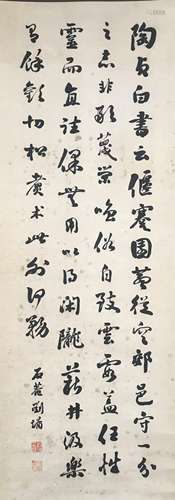 陶貞白書云偃蹇園巷從容郊邑守一介
之志非敢蔑榮嗤俗自致雲霞蓋任性
靈而直往保無用以得閑隴薪井汲樂
有餘歡切松煮术此外何務
石菴劉墉